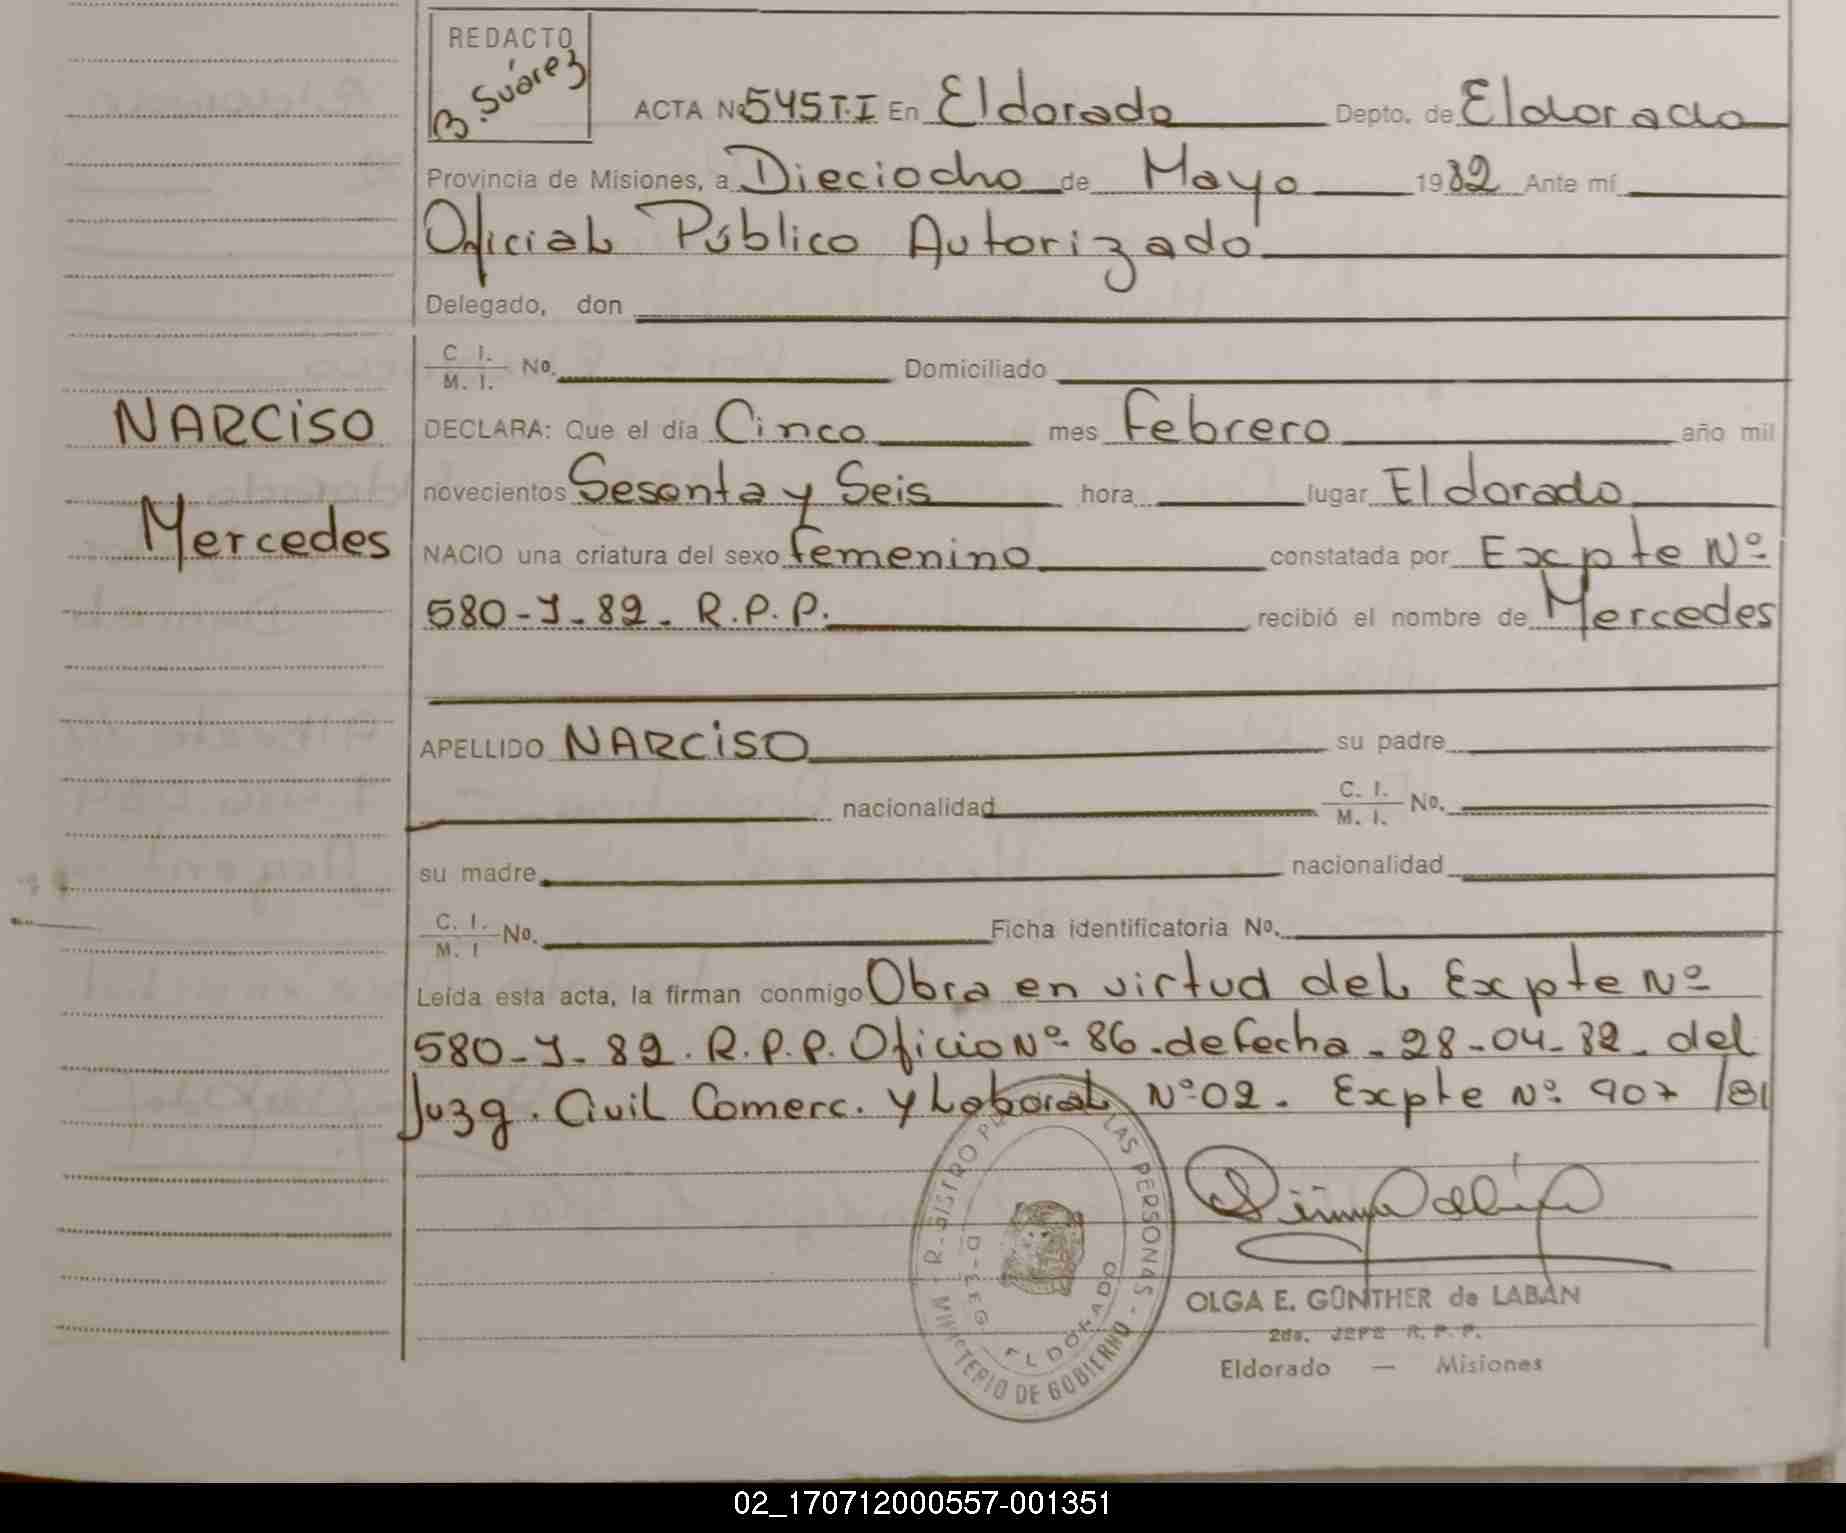 REDACTO
B. Suárez
ACTA Nº 545 T.I En Eldorado Depto. de Eldorado
Provincia de Misiones, a Dieciocho de Mayo 1982 Ante mí
Oficial Público Autorizado
Delegado, don
C. I. / M. I. No. Domiciliado
NARCISO
DECLARA: Que el día Cinco mes Febrero año mil
novecientos Sesenta y Seis hora lugar Eldorado
Mercedes
NACIO una criatura del sexo femenino constatada por Expte Nº
580-J-82. R.P.P. recibió el nombre de Mercedes
APELLIDO NARCISO su padre
nacionalidad C. I. / M. I. No.
su madre nacionalidad
C. I. / M. I No. Ficha identificatoria No.
Leída esta acta, la firman conmigo Obra en virtud del Expte Nº
580-J-82. R.P.P. Oficio Nº 86. de fecha - 28-04-82. del
Juzg. Civil Comerc. y Laboral Nº 02. Expte Nº 907/81
REGISTRO LAS PERSONAS - MINISTERIO DE GOBIERNO
ELDORADO
OLGA E. GÜNTHER de LABÁN
2do. JEFE R. P. P.
Eldorado — Misiones
02_170712000557-001351